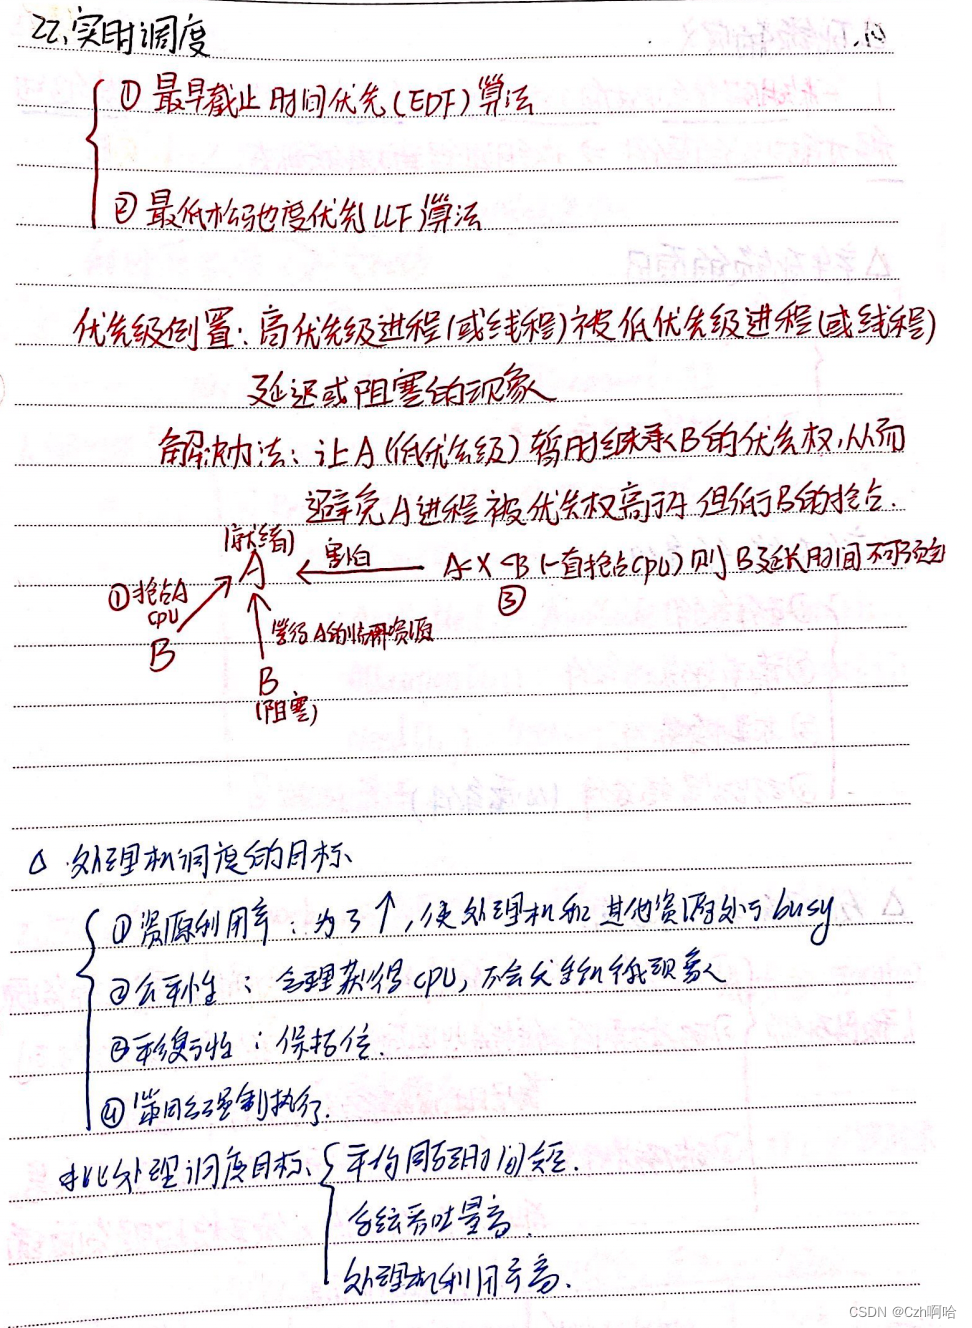 22、实时调度
① 最早截止时间优先(EDF)算法
② 最低松弛度优先LLF算法
优先级倒置：高优先级进程(或线程)被低优先级进程(或线程)
延迟或阻塞的现象
解决办法：让A(低优先级)暂时继承B的优先权,从而
避免A进程被优先权高于A但低于B的抢占.
(就绪)
A
害怕
A<X<B(一直抢占CPU)则B延长时间不可预知
③
①抢占A
CPU
B
觉得A的临界资源
B
(阻塞)
△ 处理机调度的目标、
①资源利用率：为了↑,使处理机和其他资源处于busy
②公平性：合理获得CPU,不会发生饥饿现象
③平衡性：保持
④策略强制执行.
批处理调度目标、
平均周转时间短.
系统吞吐量高.
处理机利用率高.
CSDN @Czh啊哈